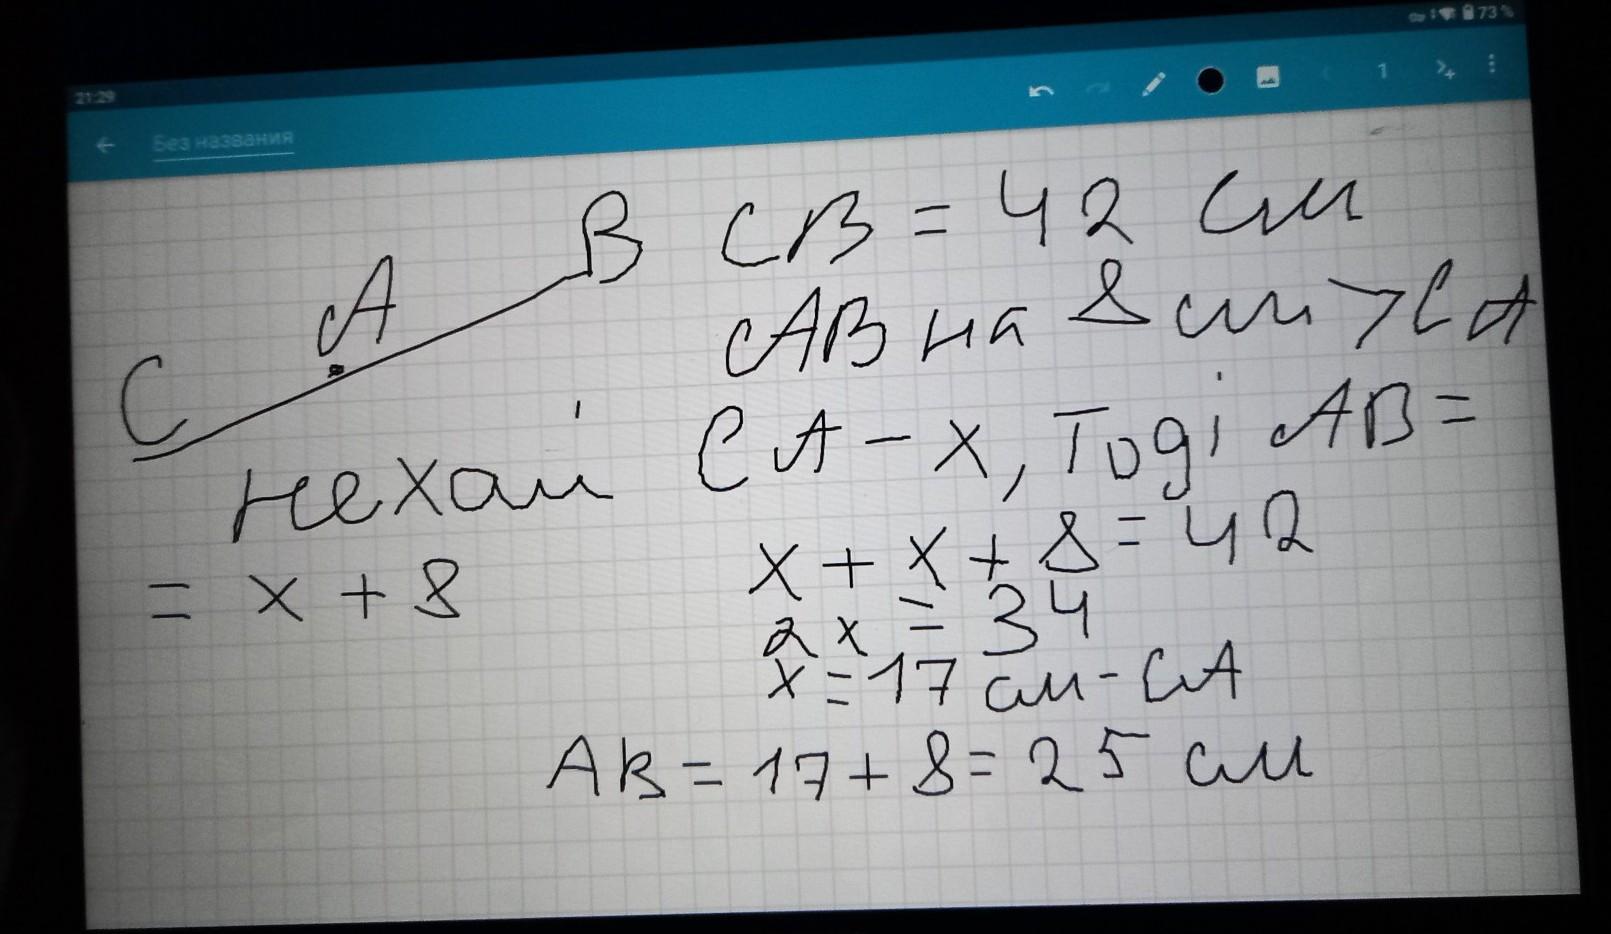 73%
21:29
Без названия
1
B CB = 42 см
A
AB на 8 см > CA
C
нехай CA - x, Тоді AB =
= x + 8
x + x + 8 = 42
2x = 34
x = 17 см - CA
AB = 17 + 8 = 25 см